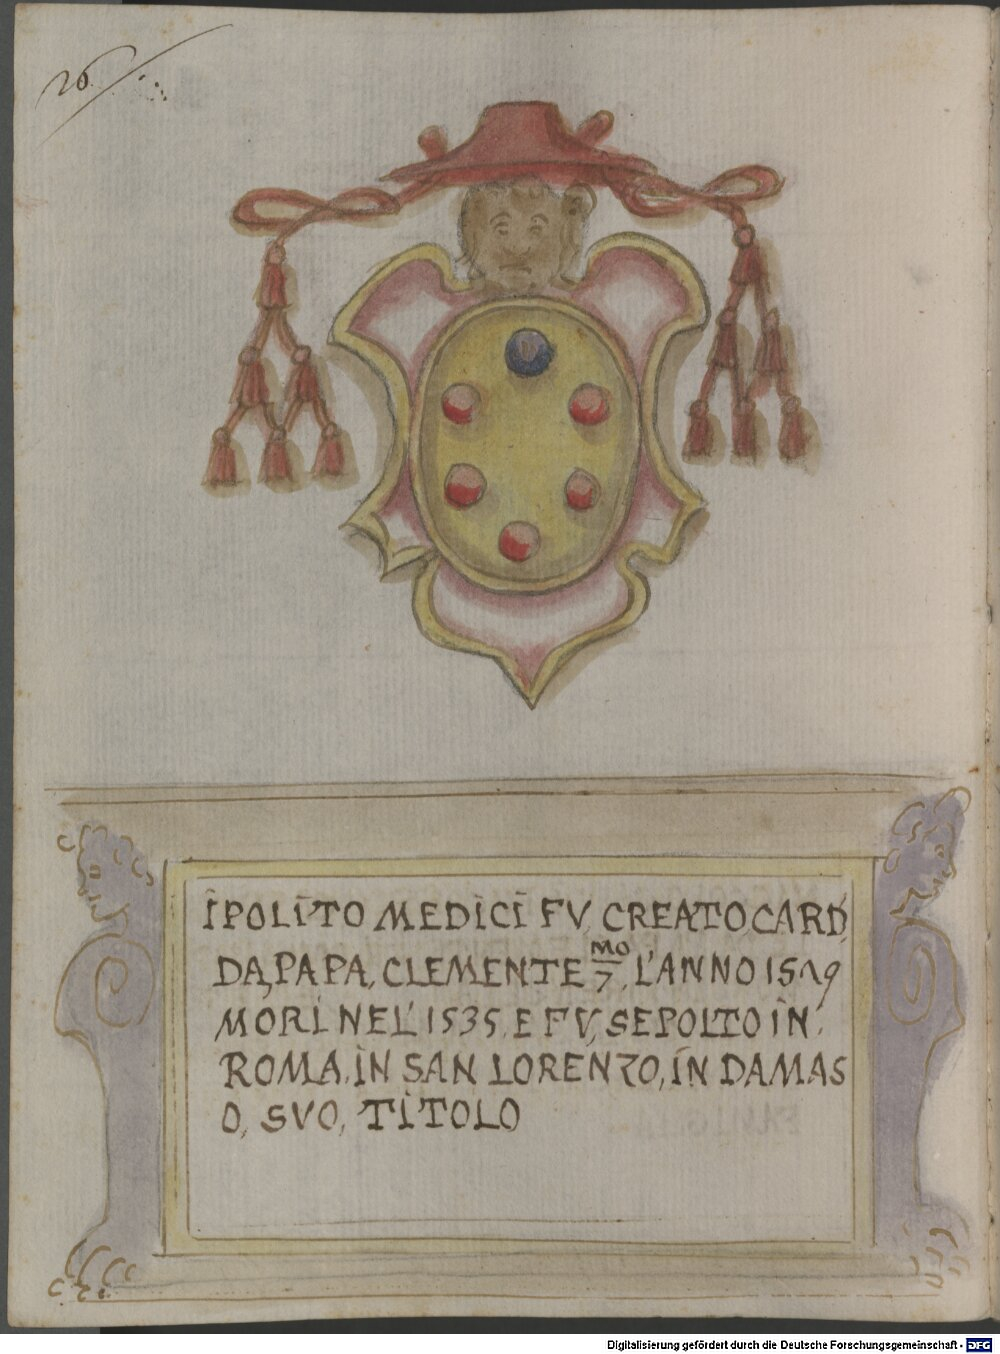 26
IPOLITO MEDICI FV, CREATO, CARD,
DA, PAPA, CLEMENTE 7^MO, L'ANNO 1529
MORI NEL' 1535, E FV, SEPOLTO IN
ROMA, IN SAN LORENZO, IN DAMAS
O, SVO, TITOLO
Digitalisierung gefördert durch die Deutsche Forschungsgemeinschaft - DFG